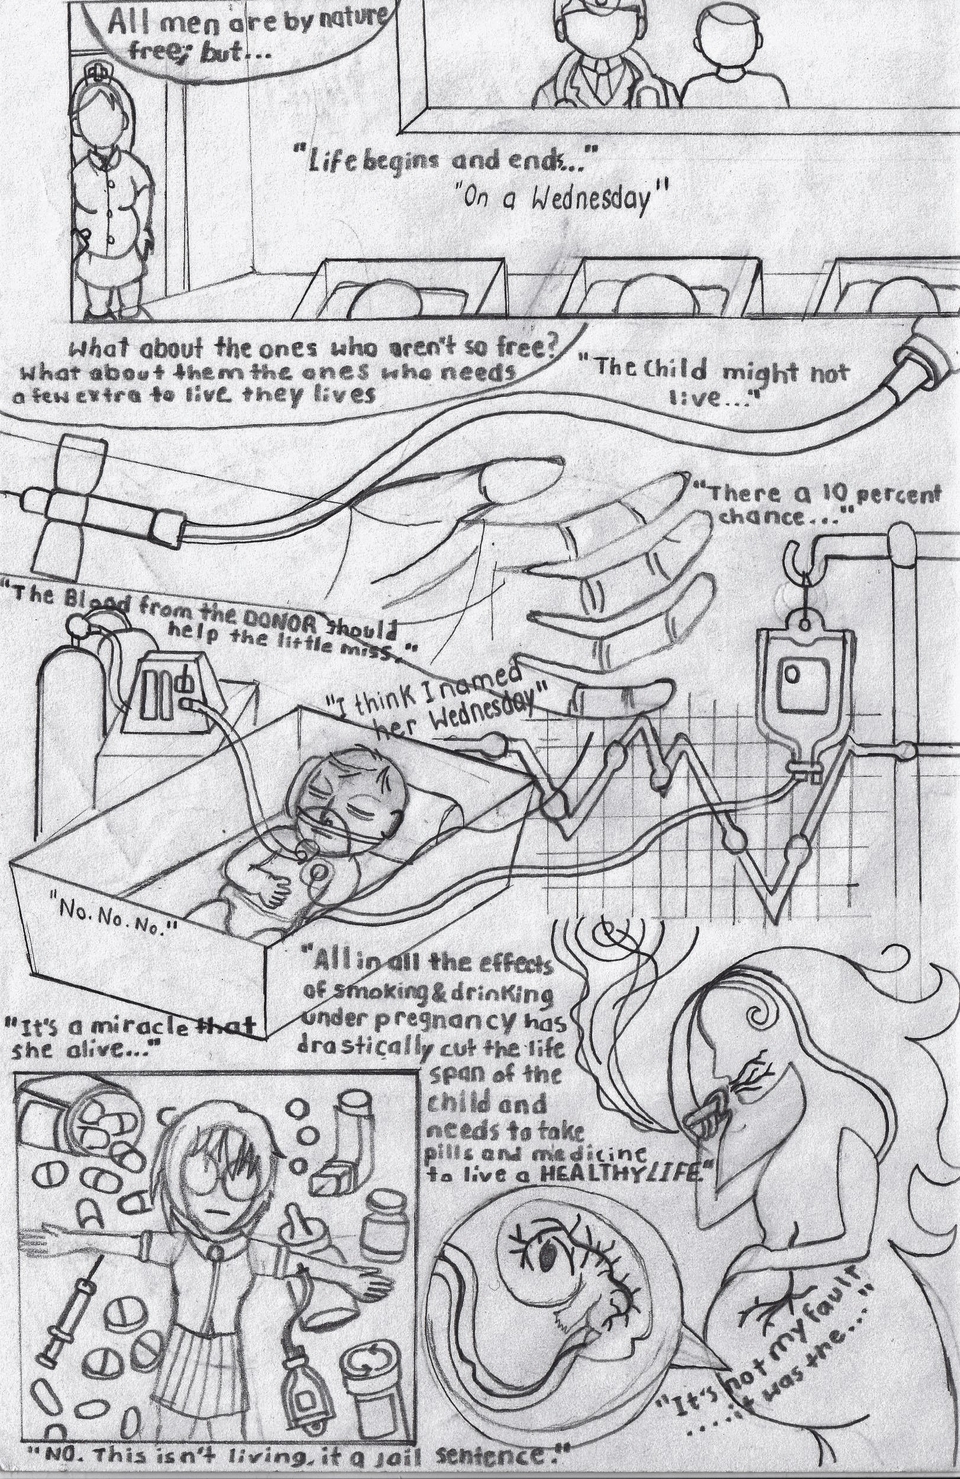 All men are by nature
free; but...
"Life begins and ends..."
"On a Wednesday"
What about the ones who aren't so free?
What about them the ones who needs
a few extra to live they lives
"The Child might not
live..."
"There a 10 percent
chance..."
"The Blood from the DONOR should
help the little miss."
"I think I named
her Wednesday"
"No. No. No."
"It's a miracle that
she alive..."
"All in all the effects
of smoking & drinking
under pregnancy has
drastically cut the life
span of the
child and
needs to take
pills and medicine
to live a HEALTHY LIFE."
"It's not my fault
...it was the..."
"NO. This isn't living, it a jail sentence."